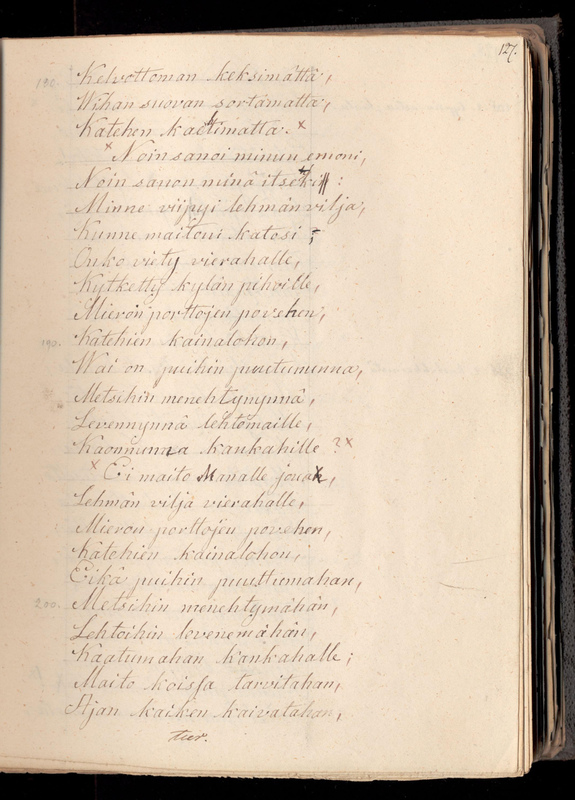 127.
190. Kelvottoman keksimättä,
Wihan suovan sortamatta,
Katehen kaetimatta. x
x Noin sanoi minun emoni,
Noin sanon minä itseki:
Minne viipyi lehmän vilja,
Kunne maitoni katosi;
Onko viety vierahalle,
Kytketty kylän pihoille,
Mieron porttojen povehen,
190. Katehien kainalohon,
Wai on puihin puutumunna,
Metsihin menehtynynnä,
Levennynnä lehtomaille,
Kaonnunna kankahille ? x
x Ei maito Manalle joua,
Lehmän vilja vierahalle,
Mieron porttojen povehen,
Katehien kainalohon,
Eikä puihin puuttumahan,
200. Metsihin menehtymähän,
Lehtoihin levenemähän,
Kaatumahan kankahalle;
Maito koissa tarvitahan,
Ajan kaiken kaivatahan,